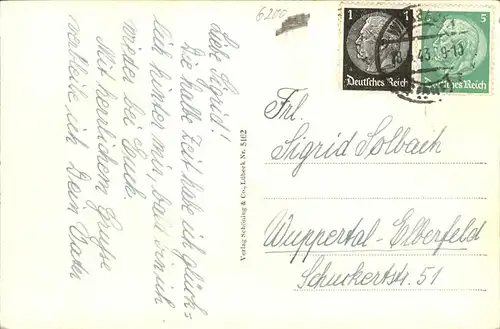 6200
Liebe Sigrid!
Die halbe Zeit habe ich glück-
lich hinter mir, bald bin ich
wieder bei Euch.
Mit herzlichem Gruße
verbleibe ich Dein Vater
Verlag Schöning & Co., Lübeck Nr. 5162
1
Deutsches Reich
5
Deutsches Reich
43
Frl.
Sigrid Solbach
Wuppertal-Elberfeld
Schuckertstr. 51